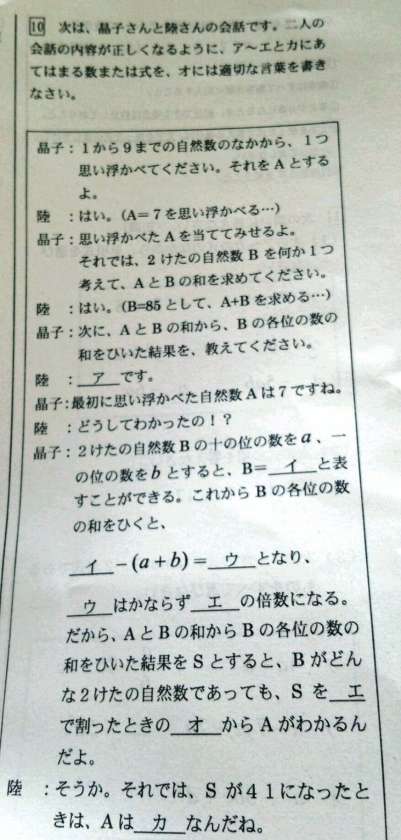 10 次は、晶子さんと陸さんの会話です。二人の
会話の内容が正しくなるように、ア～エとカにあ
てはまる数または式を、オには適切な言葉を書き
なさい。
晶子：１から９までの自然数のなかから、１つ
思い浮かべてください。それをＡとする
よ。
陸　：はい。（A＝７を思い浮かべる…）
晶子：思い浮かべたＡを当ててみせるよ。
それでは、２けたの自然数Ｂを何か１つ
考えて、ＡとＢの和を求めてください。
陸　：はい。（B=85として、A+Bを求める…）
晶子：次に、ＡとＢの和から、Ｂの各位の数の
和をひいた結果を、教えてください。
陸　：　ア　です。
晶子：最初に思い浮かべた自然数Ａは７ですね。
陸　：どうしてわかったの！？
晶子：２けたの自然数Ｂの十の位の数をa、一
の位の数をbとすると、B＝　イ　と表
すことができる。これからＢの各位の数
の和をひくと、
イ　－(a＋b)＝　ウ　となり、
ウ　はかならず　エ　の倍数になる。
だから、ＡとＢの和からＢの各位の数の
和をひいた結果をＳとすると、Ｂがどん
な２けたの自然数であっても、Ｓを　エ
で割ったときの　オ　からＡがわかるん
だよ。
陸　：そうか。それでは、Ｓが４１になったと
きは、Ａは　カ　なんだね。